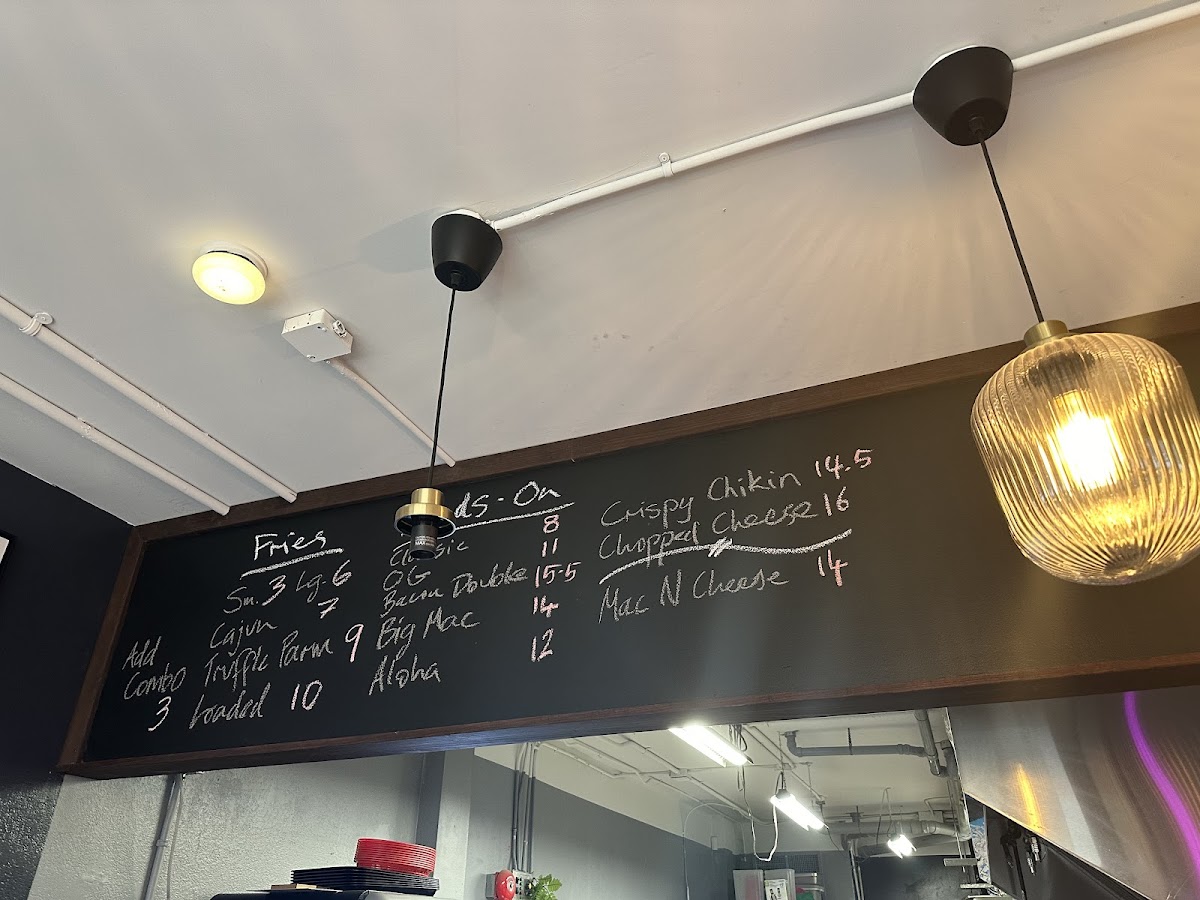 Add
Combo
3
Fries
Sm. 3 Lg. 6
Cajun 7
Truffle Parm 9
Loaded 10
ds-On
Classic 8
OG 11
Bacon Double 15.5
Big Mac 14
Aloha 12
Crispy Chikin 14.5
Chopped Cheese 16
Mac N Cheese 14